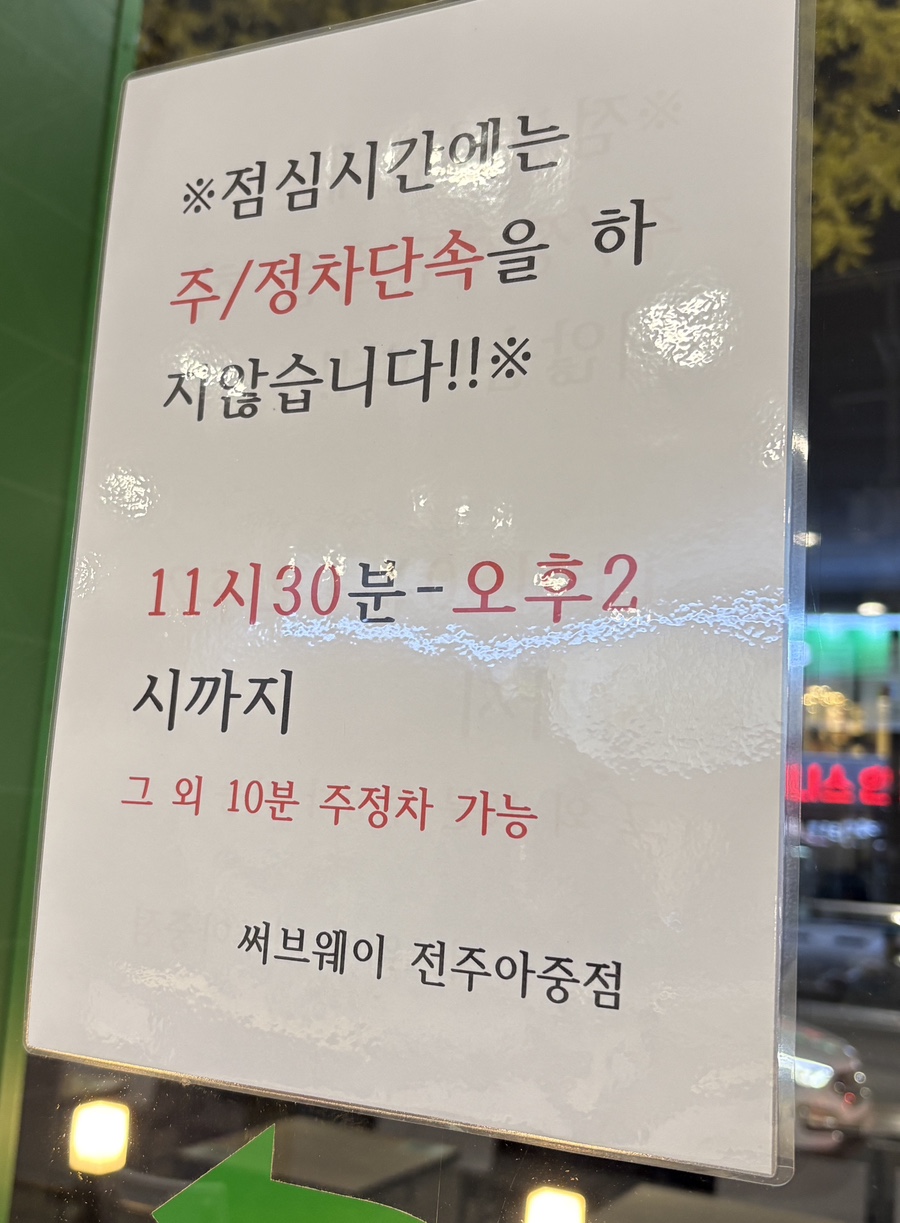 ※점심시간에는
주/정차단속을 하
지않습니다!!※
11시30분-오후2
시까지
그 외 10분 주정차 가능
써브웨이 전주아중점